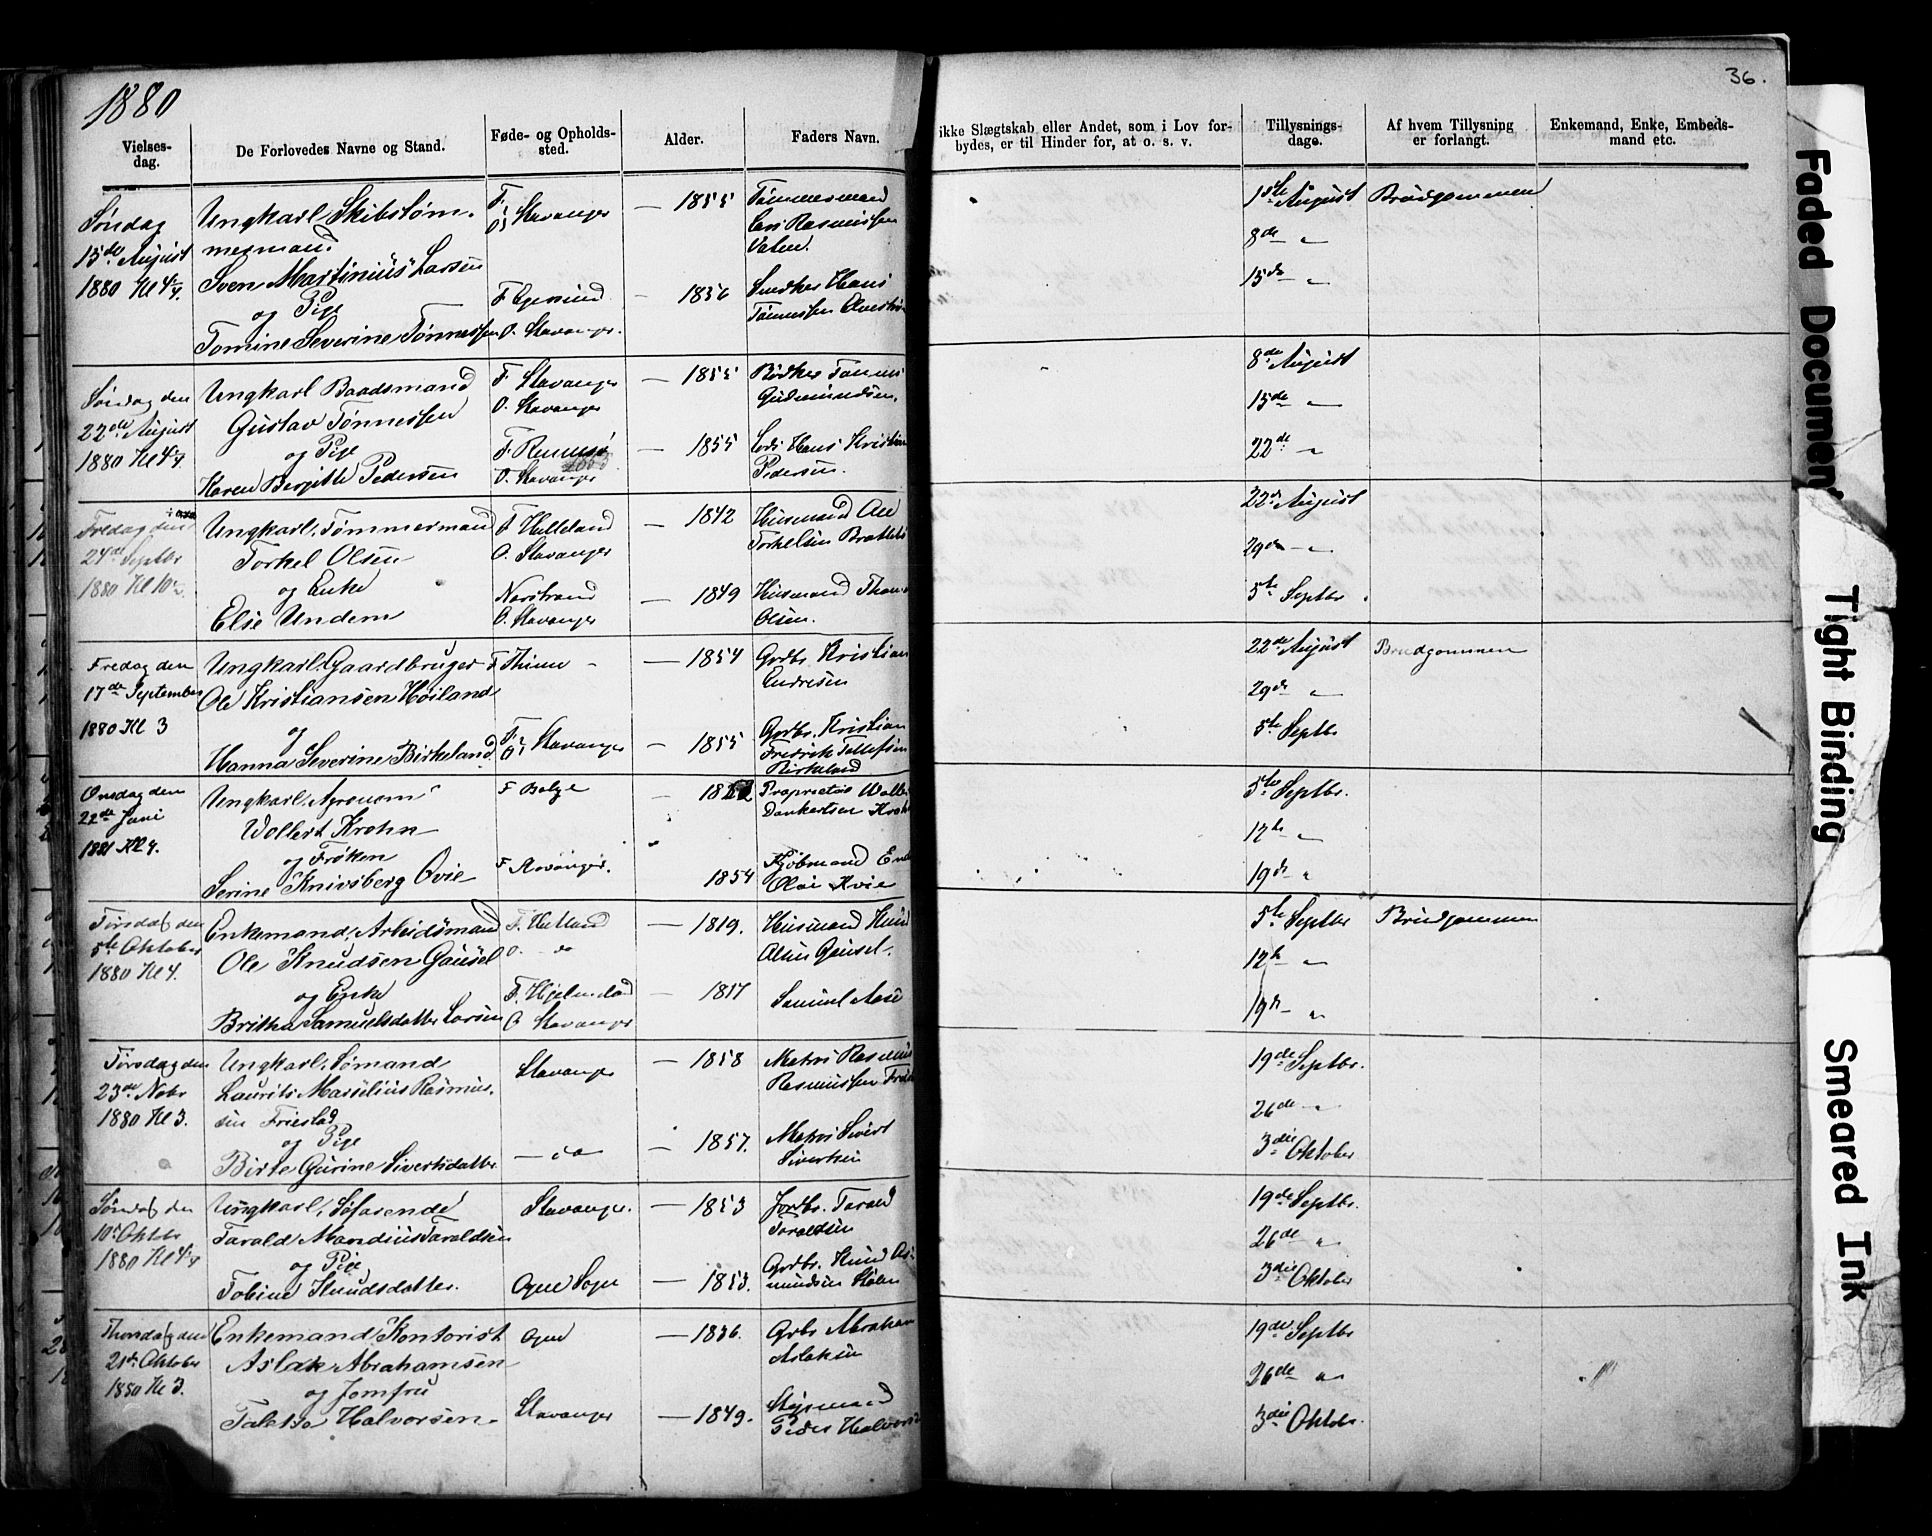 1880
36.
Vielses-
dag.
De Forlovedes Navne og Stand.
Føde- og Opholds-
sted.
Alder.
Faders Navn.
ikke Slægtskab eller Andet, som i Lov for-
bydes, er til Hinder for, at o. s. v.
Tillysnings-
dage.
Af hvem Tillysning
er forlangt.
Enkemand, Enke, Embeds-
mand etc.
Søndag
15de August
1880 Kl 4¼
Ungkarl Skibstøm-
mermand
Sven Martinius Larsen
og Pige
Tomine Severine Tønnessen
F. O. Stavanger
F Egersund
O. Stavanger.
— 1855
— 1856
Tømmermand
Rasmussen
Hans
Tønnessen
1ste August
8de "
15de "
Brudgommen
Søndag den
22de August
1880 Kl 4¼
Ungkarl Baadsmand
Gustav Tønnessen
og Pige
Karen Bergitte Pedersen
F. Stavanger
O. Stavanger
O. Stavanger
— 1855
— 1855
Bødker Tønnes
Gudmundsen.
Hans Kristian
Pedersen.
8de August
15de "
22de "
Fredag den
24de Septbr
1880 Kl 10
Ungkarl, Tømmermand
Torkel Olsen
og Enke
Else Undem
F Helleland
O. Stavanger
Nærstrand
O. Stavanger
— 1842
— 1849
Husmand
Torkelsen
Husmand
Olsen.
22de August
29de "
5te Septbr.
Fredag den
17de September
1880 Kl 3
Ungkarl, Gaardbruger
Ole Kristiansen Høiland
og
Hanna Severine Birkeland
F Thime
F. O. Stavanger
— 1854
— 1855
Grdbr. Kristian
Andresen
Grdbr. Kristian
Fredrik Tollefsen
Birkeland
22de August
29de "
5te Septbr
Brudgommen
Onsdag den
22de Juni
1881 Kl 4.
Ungkarl, Agronom
Wollert Krohn
og Frøken
Serine Knivsberg Qvie
F
F Stavanger.
1854
Proprietær
Dankertsen Krohn
Kjøbmand
Olai Kvie
5te Septbr.
12te "
19de "
Tirsdag den
5te Oktober
1880 Kl 4.
Enkemand, Arbeidsmand
Ole Knudsen Gausel
og Enke
Britha Samuelsdatter Larsen
F. Hetland
O. do
F. Hjelmeland
O Stavanger
— 1819.
— 1817
Husmand Knud
Olsen Gausel.
Samuel Aase
5te Septbr
12te "
19de "
Brudgommen
Tirsdag den
23de Novbr
1880 Kl 3.
Ungkarl, Sømand
Laurits Marselius Rasmus-
sen Friestad
og Pige
Birte Gurine Sivertsdatter
Stavanger
— do
— 1858
— 1857.
Matros Rasmus
Rasmussen
Matros Sivert
Sivertsen
19de Septbr.
26de "
3die Oktober
Søndag den
10de Oktbr
1880 Kl 4¼
Ungkarl, Søfarende
Tarald Mandius Taraldsen
og Pige
Tobine Knudsdatter.
Stavanger.
Ogne Sogn
— 1853
— 1853.
Tarald
Taraldsen
Grdbr. Knud As-
mundsen
19de Septbr.
26de "
3die Oktober
Thorsdag den
21de Oktober
1880 Kl 3.
Enkemand, Kontorist
Aslak Abrahamsen
og Jomfru
Taletta Halvorsen
Ogne
Stavanger
— 1836.
— 1849.
Grdbr Abraham
Aslaksen
Styrmand
Peder Halvorsen
19de Septbr
26de "
3die Oktober.
Faded Document
Tight Binding
Smeared Ink